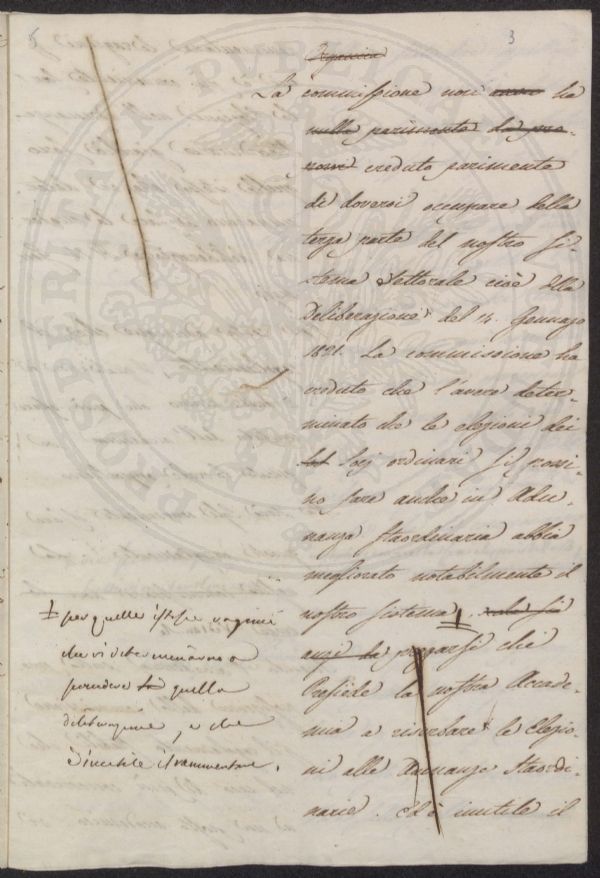 5
3
Organica
La commissione non ha
nulla parimente
creduto parimente
di doversi occupare della
terza parte del nostro Si-
stema elettorale cioè della
Deliberazione del 14. Gennajo
1821. La commissione ha
veduto che l'avere deter-
minato che le elezioni dei
Soj ordinari si possi-
no fare anche in Adu-
nanza straordinaria abbia
megliorato notabilmente il
nostro sistema
anzi pregarsi chi
Presiede la nostra Accade-
mia a riserbare le Elezio-
ni alle Adunanze Straordi-
narie. Ed è inutile il
per quelle istesse ragioni
che vi determinarono a
prendere quella
deliberazione, e che
è inutile il rammentare.
PROSPERITATI PUBLICAE